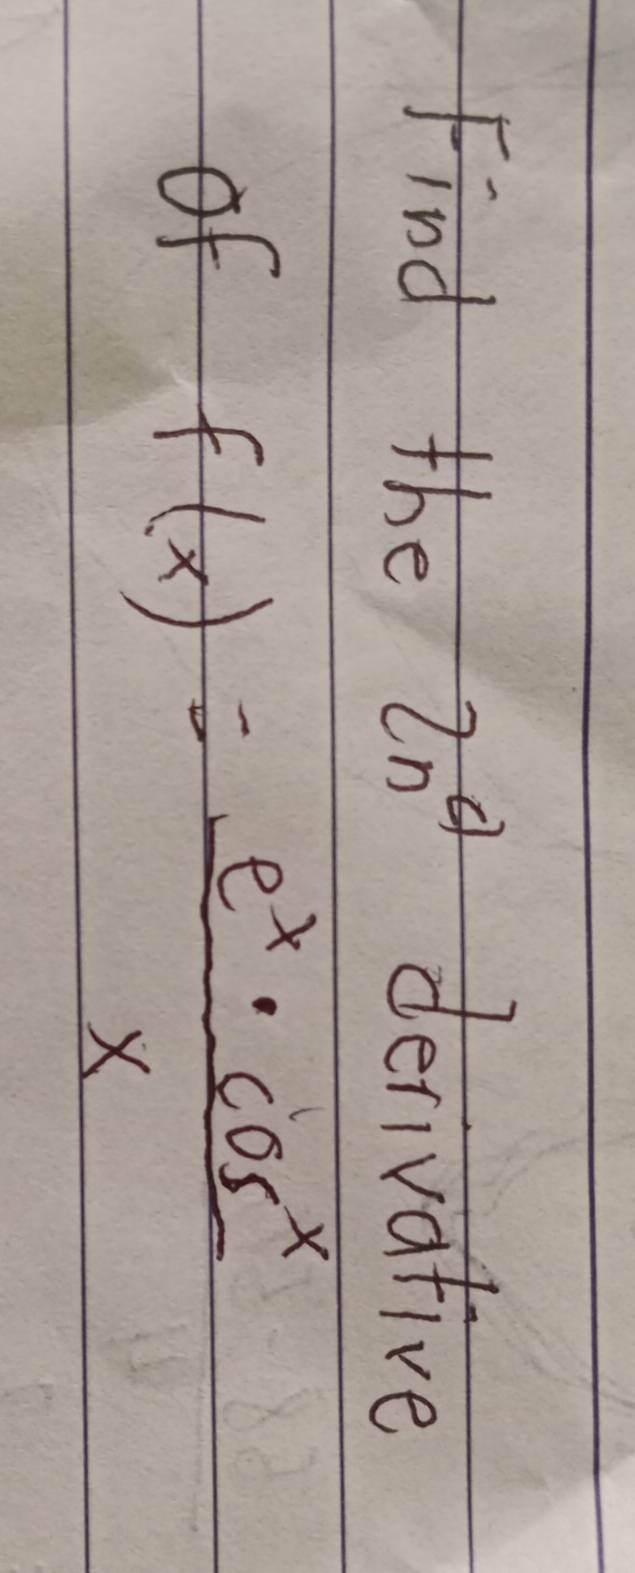 Find the 2nᵈ derivative
of f(x) = eˣ · cosˣ
x